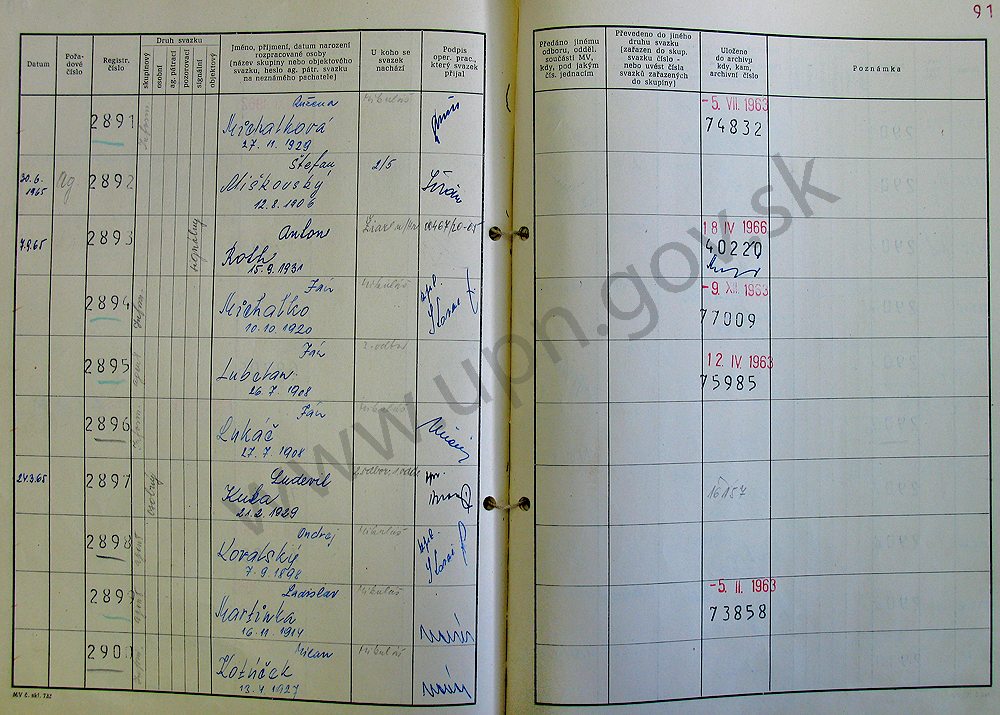 91
Datum
Pořa-
dové
číslo
Registr.
číslo
Druh svazku
skupinový
osobní
ag. pátrací
pozorovací
signální
objektový
Jméno, příjmení, datum narození
rozpracované osoby
(název skupiny nebo objektového
svazku, heslo ag. pátr. svazku
na neznámého pachatele)
U koho se
svazek
nachází
Podpis
oper. prac.,
který svazek
přijal
Předáno jinému
odboru, odděl.
součásti MV,
kdy, pod jakým
čís. jednacím
Převedeno do jiného
druhu svazku
(zařazen do skup.
svazku číslo -
nebo uvést čísla
svazků zařazených
do skupiny)
Uloženo
do archivu
kdy, kam,
archivní číslo
Poznámka
2891
Ružena
Michalková
27. 11. 1929
Mikuláš
-5. VII. 1963
74832
30.6.
1965
ag
2892
Štefan
Miškovský
12. 8. 1906
2/5
7.9.65
2893
signálny
Anton
Roth
15. 9. 1931
Žiar n/Hr
18 IV 1966
40220
2894
Ján
Michalko
10. 10. 1920
Mikuláš
-9. XII. 1963
77009
2895
agent
Ján
26. 7. 1908
2. odbor
12. IV. 1963
75985
2896
Ján
Lukáč
27. 7. 1908
Mikuláš
24.3.65
2897
osobný
Ľudevít
Kuba
21. 2. 1929
16157
2898
agent
Ondrej
Kovalský
7. 9. 1898
Mikuláš
2899
agent
Ladislav
Martinka
16. 11. 1914
Mikuláš
-5. III. 1963
73858
2900
Milan
Kotrček
13. 4. 1927
Mikuláš
MV č. skl. 732
www.upn.gov.sk